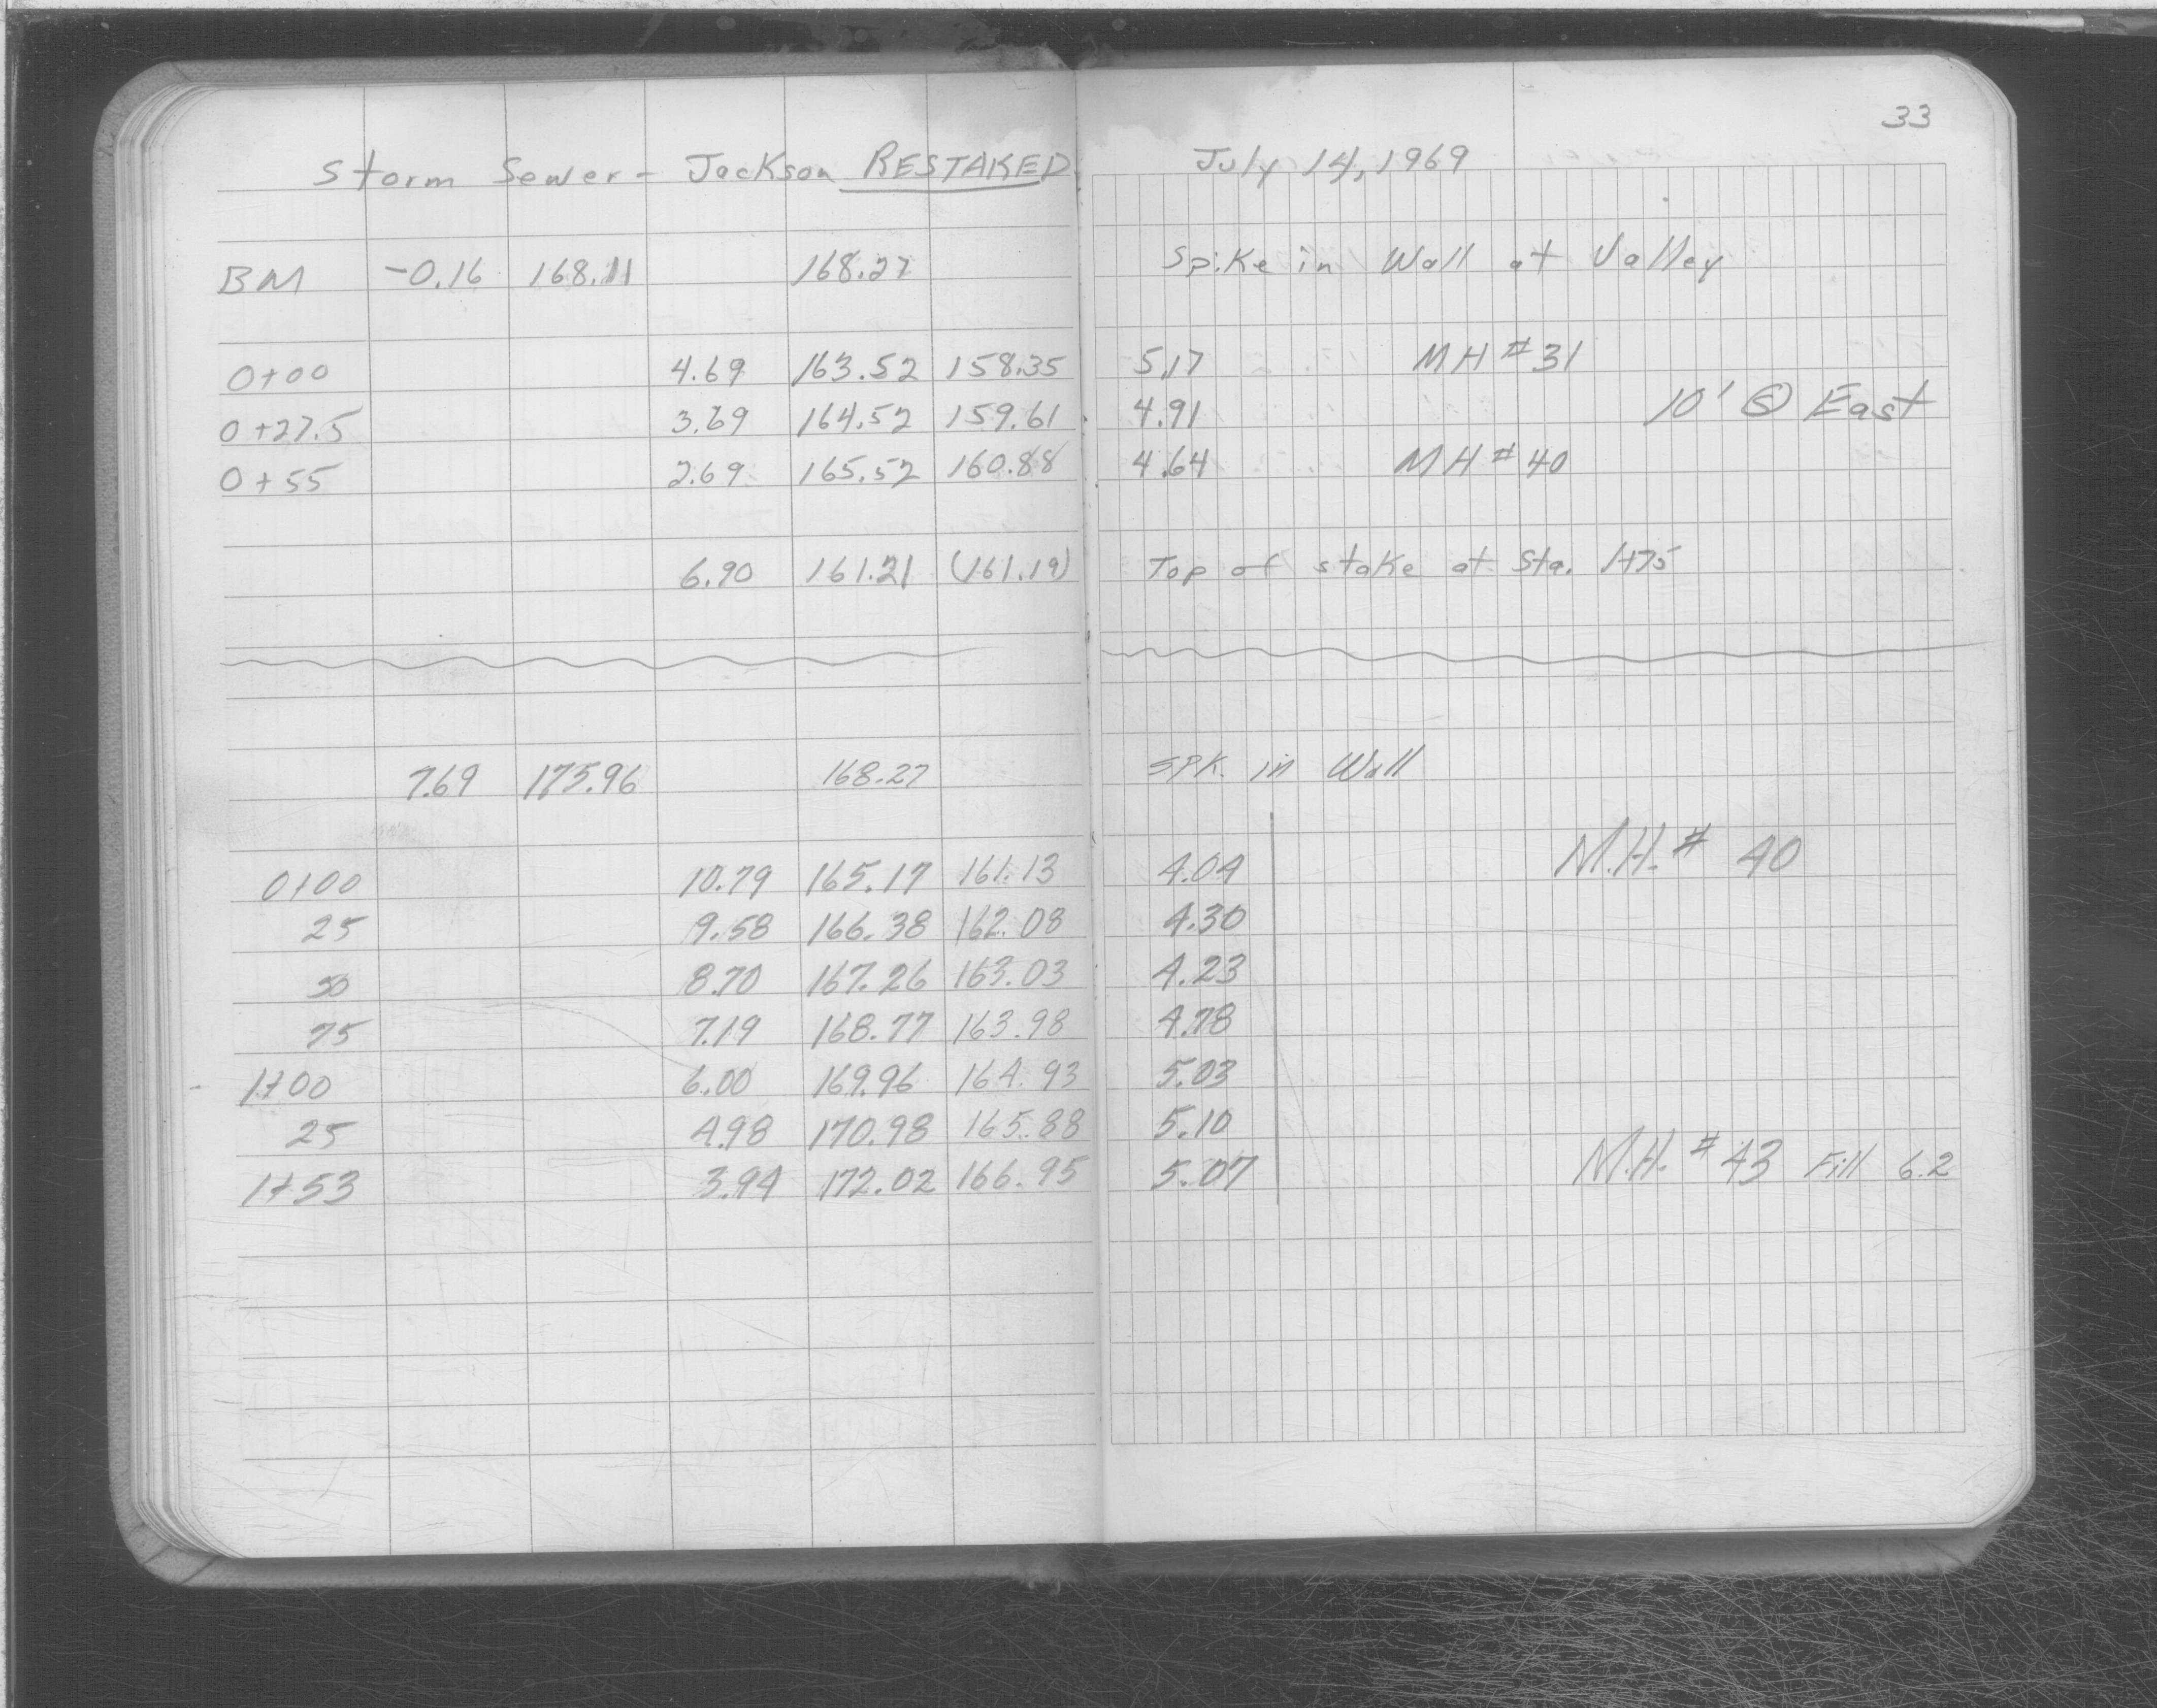 33
Storm Sewer - Jackson RESTAKED July 14, 1969
BM -0.16 168.11 168.27 Spike in Wall at Valley
0+00 4.69 163.42 158.35 5.17 MH #31
10' @ East
0+27.5 3.69 164.52 159.61 4.91
0+55 2.69 165.52 160.88 4.64 MH #40
6.90 161.21 (161.19) Top of stake at Sta. 1+75
7.69 175.96 168.27 SPK. in Wall
0+00 10.79 165.17 161.13 4.04 M.H. # 40
25 9.58 166.38 162.08 4.30
50 8.70 167.26 163.03 4.23
75 7.19 168.77 163.98 4.78
1+00 6.00 169.96 164.93 5.03
25 4.98 170.98 165.88 5.10
1+53 3.94 172.02 166.95 5.07 M.H. #43 Fill 6.2